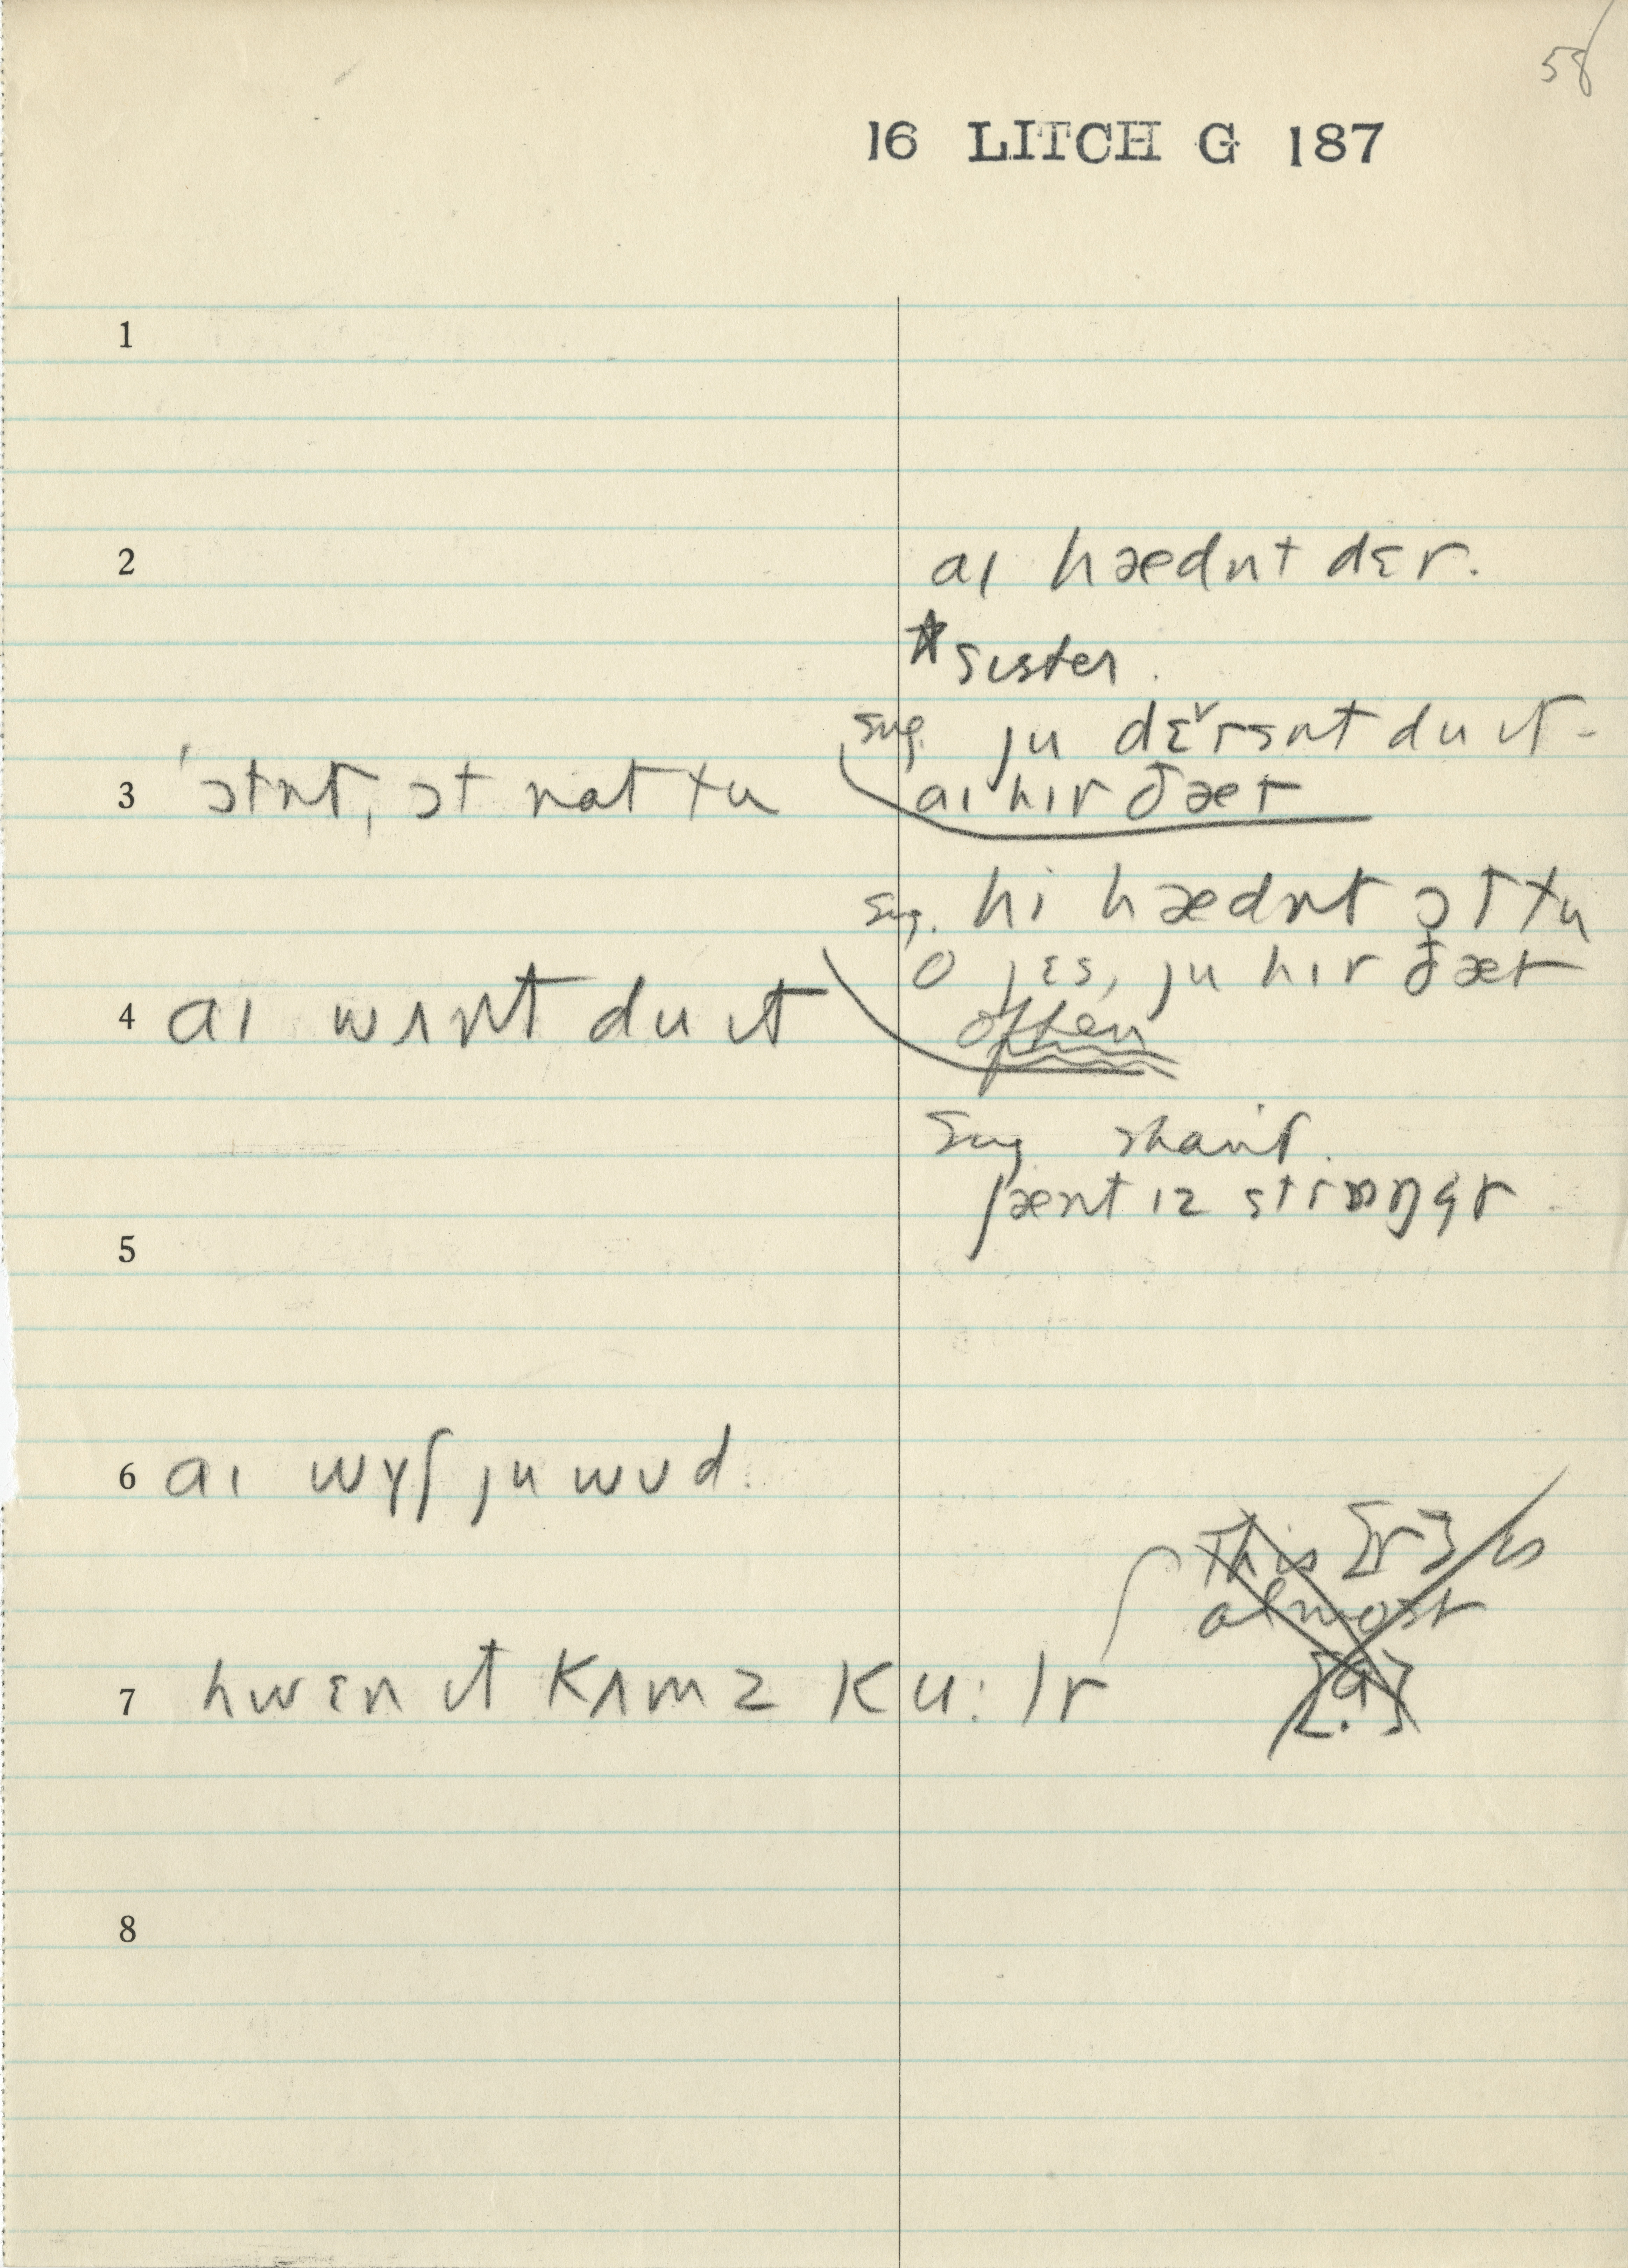 58
16 LITCH G 187
1
2 aɪ hædnt dɛr.
* sister.
sug. ju dɛ̌rsnt du ɪt -
3 'ɔtnt, ɔt nat tu aɪ hɪr ðæt
sug. hi hædnt ɔt tu
o jɛs, ju hɪr ðæt
4 aɪ wʌnt du ɪt often
Sug shan't.
ʃænt ɪz strɒŋgr
5
6 aɪ wɪʃ ju wʊd.
This [r] is
almost
7 hwɛn ɪt kʌmz ku:lr
8